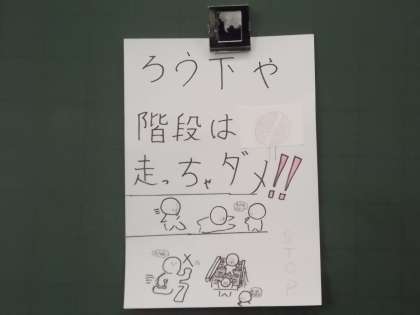 ろう下や
階段は
走っちゃダメ!!
STOP